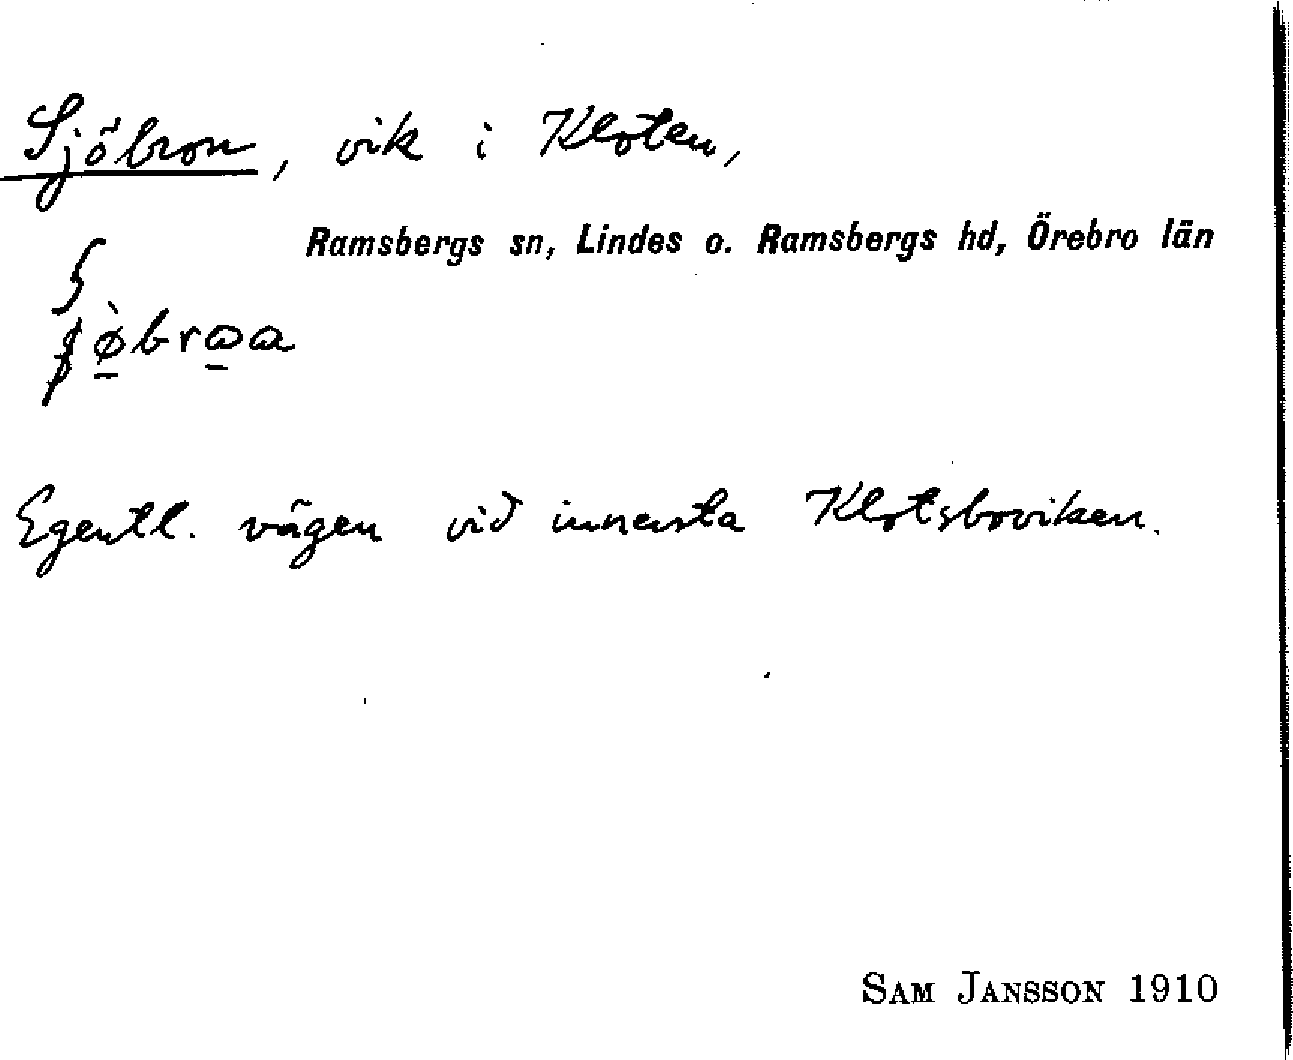 Sjöbron, vik i Kloten,
Ramsbergs sn, Lindes o. Ramsbergs hd, Örebro län
Egentl. vägen vid innersta Klotsboviken.
SAM JANSSON 1910